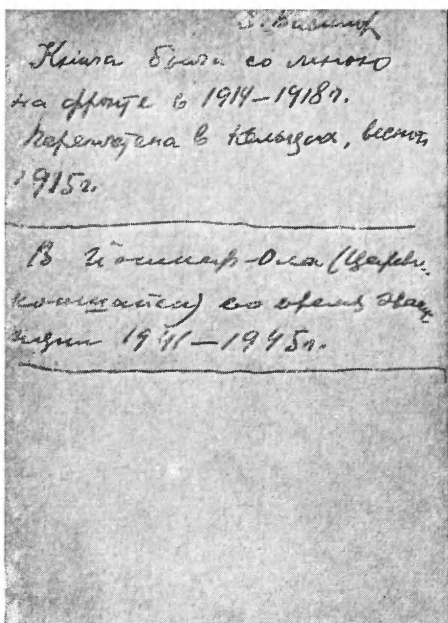 Книга была со мною
на фронте в 1914–1918г.
Переплетена в Кельцах, весной
1915г.
В Йошкар-Ола (Царево-
кокшайск) во время эваку-
ации 1941–1945г.